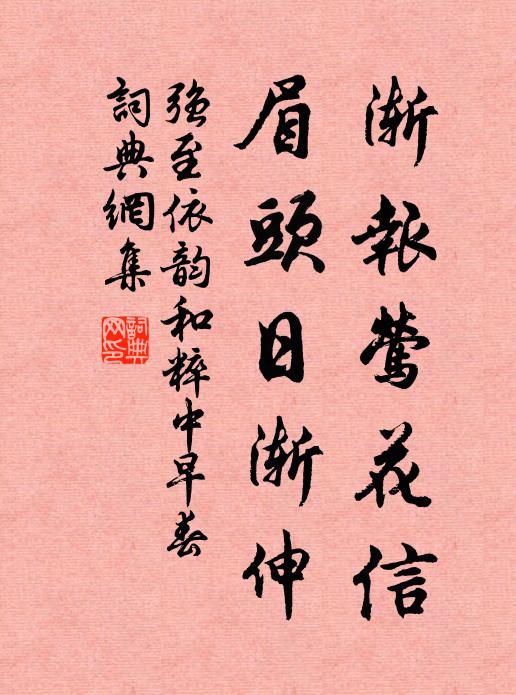 漸報鶯花信
眉頭日漸伸
強至依韵和粹中早春
詞典網集
詞典網印